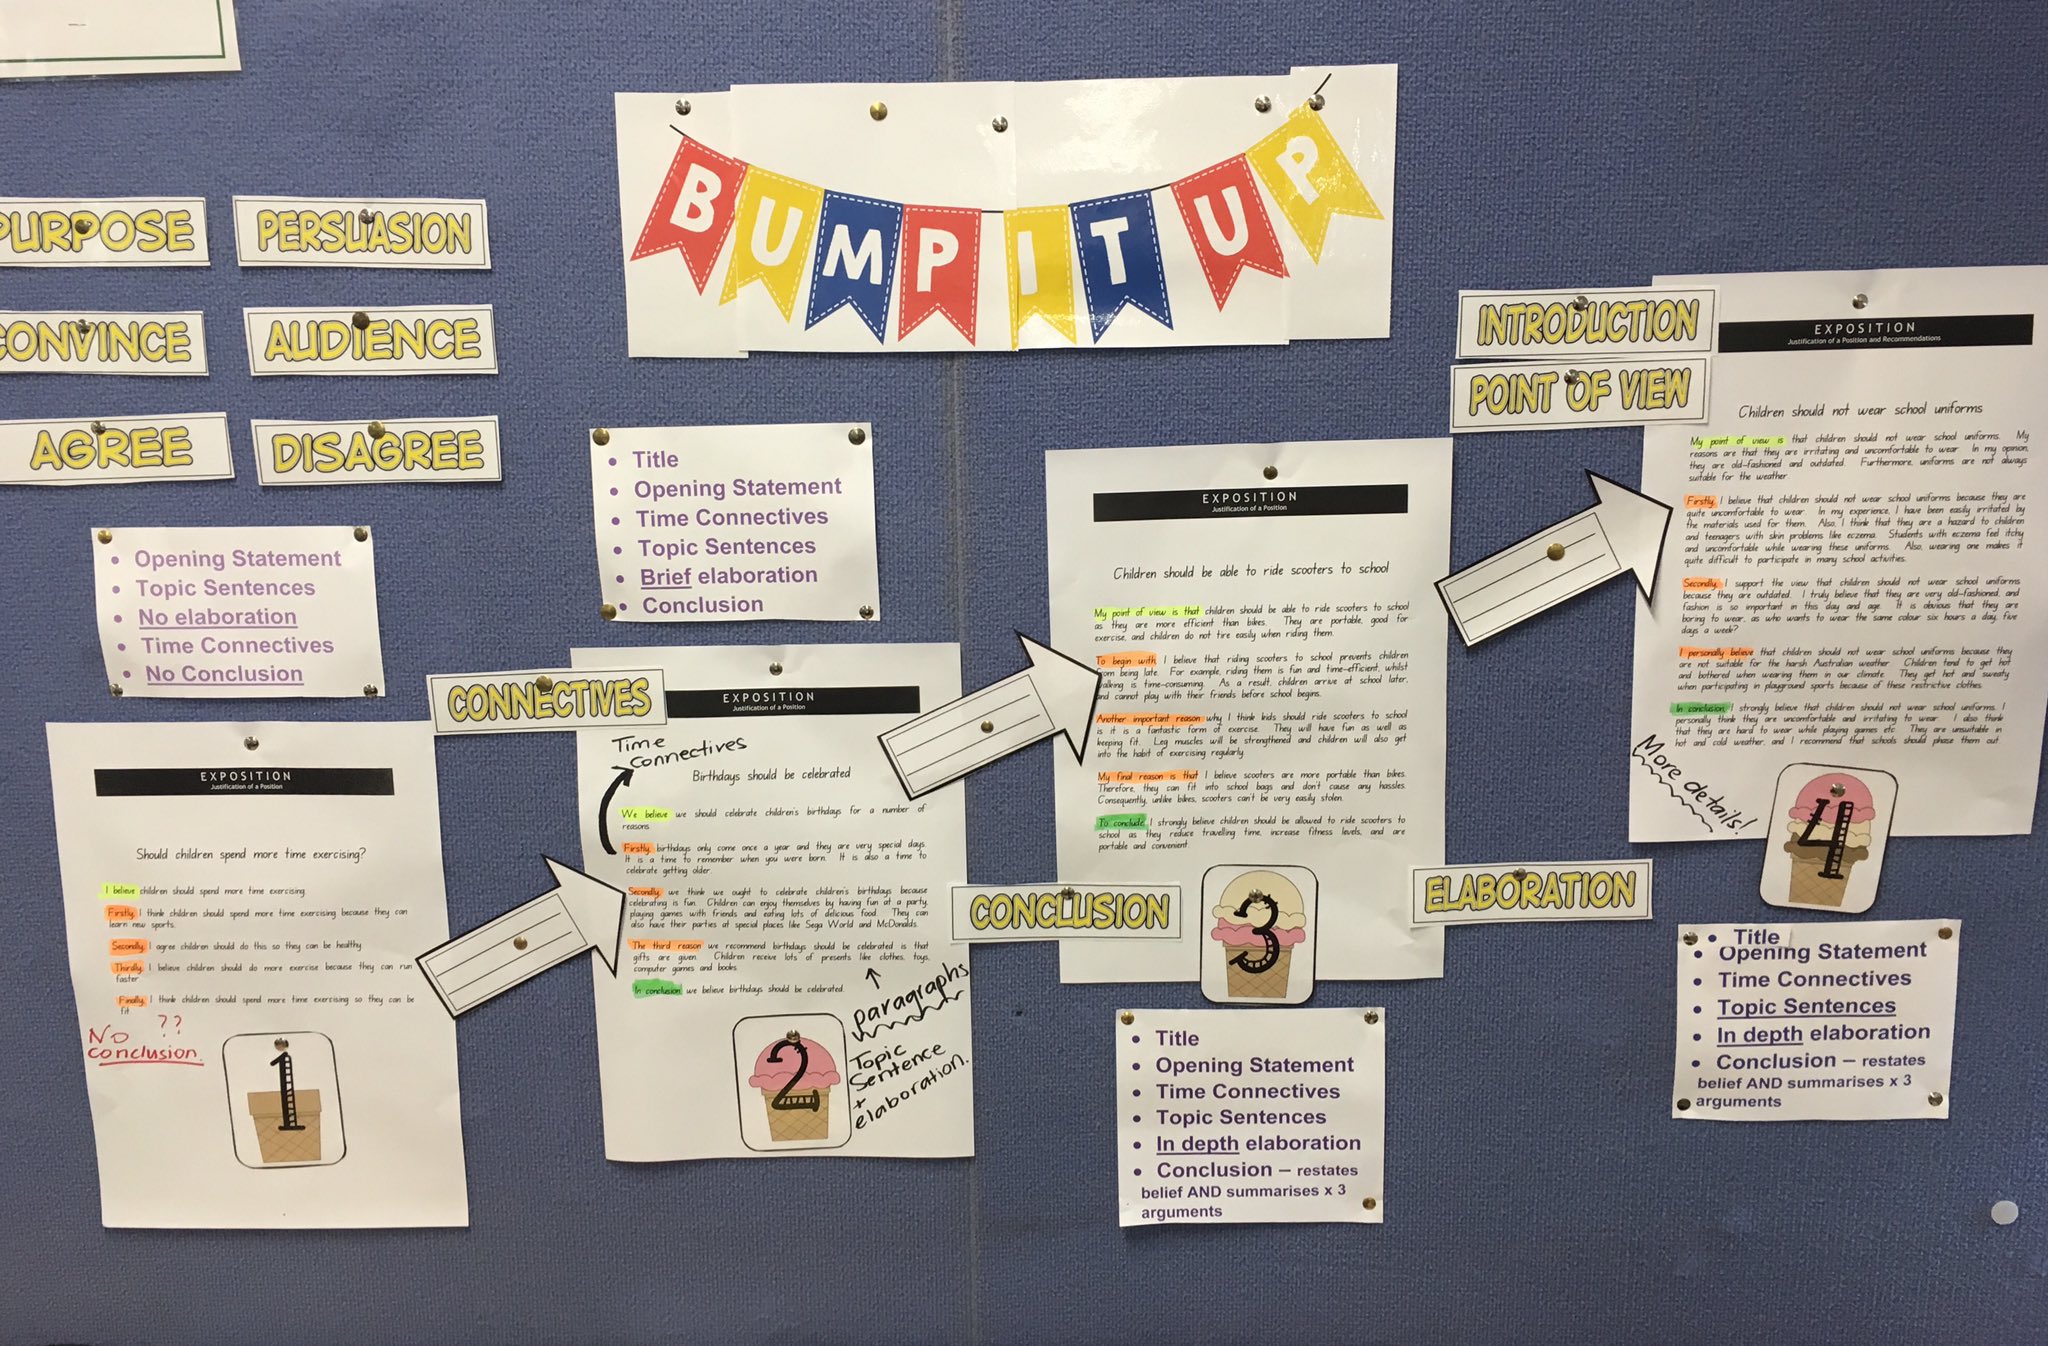 BUMP IT UP
PURPOSE
PERSUASION
CONVINCE
AUDIENCE
AGREE
DISAGREE
• Opening Statement
• Topic Sentences
• No elaboration
• Time Connectives
• No Conclusion
EXPOSITION
Justification of a Position
Should children spend more time exercising?
I believe children should spend more time exercising.
Firstly, I think children should spend more time exercising because they can
learn new sports.
Secondly, I agree children should do this so they can be healthy.
Thirdly, I believe children should do more exercise because they can run
faster.
Finally, I think children should spend more time exercising so they can be
fit.
??
NO
conclusion.
1
• Title
• Opening Statement
• Time Connectives
• Topic Sentences
• Brief elaboration
• Conclusion
CONNECTIVES
EXPOSITION
Justification of a Position
Time
Connectives
Birthdays should be celebrated
We believe we should celebrate children's birthdays for a number of
reasons.
Firstly, birthdays only come once a year and they are very special days.
It is a time to remember when you were born. It is also a time to
celebrate getting older.
Secondly, we think we ought to celebrate children's birthdays because
celebrating is fun. Children can enjoy themselves by having fun at a party,
playing games with friends and eating lots of delicious food. They can
also have their parties at special places like Sega World and McDonalds.
The third reason we recommend birthdays should be celebrated is that
gifts are given. Children receive lots of presents like clothes, toys,
computer games and books.
In conclusion, we believe birthdays should be celebrated.
paragraphs
Topic
Sentence
+
elaboration.
2
EXPOSITION
Justification of a Position
Children should be able to ride scooters to school
My point of view is that children should be able to ride scooters to school
as they are more efficient than bikes. They are portable, good for
exercise, and children do not tire easily when riding them.
To begin with, I believe that riding scooters to school prevents children
from being late. For example, riding them is fun and time-efficient, whilst
walking is time-consuming. As a result, children arrive at school later,
and cannot play with their friends before school begins.
Another important reason why I think kids should ride scooters to school
is it is a fantastic form of exercise. They will have fun as well as
keeping fit. Leg muscles will be strengthened and children will also get
into the habit of exercising regularly.
My final reason is that I believe scooters are more portable than bikes.
Therefore, they can fit into school bags and don't cause any hassles.
Consequently, unlike bikes, scooters can't be very easily stolen.
To conclude, I strongly believe children should be allowed to ride scooters to
school as they reduce travelling time, increase fitness levels, and are
portable and convenient.
CONCLUSION
3
• Title
• Opening Statement
• Time Connectives
• Topic Sentences
• In depth elaboration
• Conclusion – restates
belief AND summarises x 3
arguments
INTRODUCTION
POINT OF VIEW
EXPOSITION
Justification of a Position and Recommendations
Children should not wear school uniforms
My point of view is that children should not wear school uniforms. My
reasons are that they are irritating and uncomfortable to wear. In my opinion,
they are old-fashioned and outdated. Furthermore, uniforms are not always
suitable for the weather.
Firstly, I believe that children should not wear school uniforms because they are
quite uncomfortable to wear. In my experience, I have been easily irritated by
the materials used for them. Also, I think that they are a hazard to children
and teenagers with skin problems like eczema. Students with eczema feel itchy
and uncomfortable while wearing these uniforms. Also, wearing one makes it
quite difficult to participate in many school activities.
Secondly, I support the view that children should not wear school uniforms
because they are outdated. I truly believe that they are very old-fashioned, and
fashion is so important in this day and age. It is obvious that they are
boring to wear, as who wants to wear the same colour six hours a day, five
days a week?
I personally believe that children should not wear school uniforms because they
are not suitable for the harsh Australian weather. Children tend to get hot
and bothered when wearing them in our climate. They get hot and sweaty
when participating in playground sports because of these restrictive clothes.
In conclusion, I strongly believe that children should not wear school uniforms. I
personally think they are uncomfortable and irritating to wear. I also think
that they are hard to wear while playing games etc. They are unsuitable in
hot and cold weather, and I recommend that schools should phase them out.
More details!
4
ELABORATION
• Title
• Opening Statement
• Time Connectives
• Topic Sentences
• In depth elaboration
• Conclusion – restates
belief AND summarises x 3
arguments